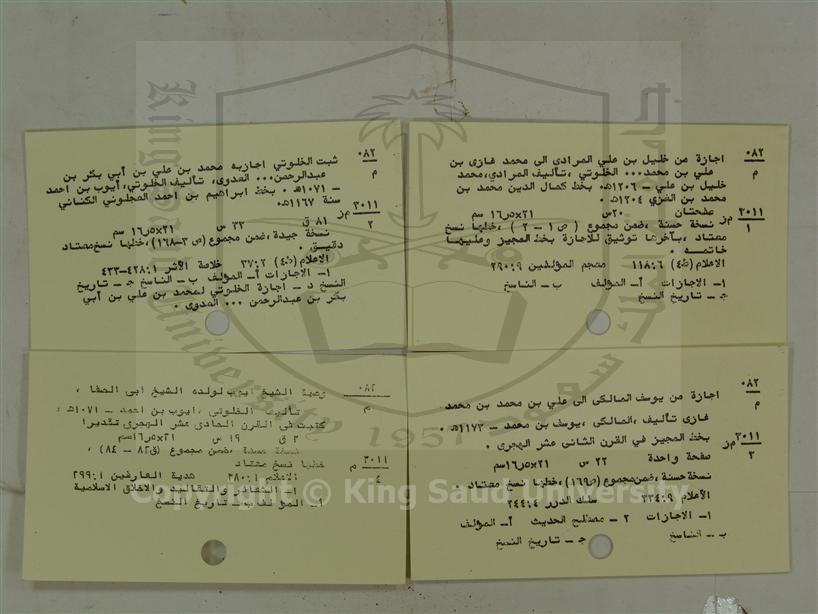 ٠٨٢
م
٣٠١١ م ز
١
اجازة من خليل بن علي المرادى الى محمد غازى بن
علي بن محمد... الخلوتي ،تأليف المرادي،محمد
خليل بن علي - ١٢٠٦هـ. بخط كمال الدين محمد بن
محمد بن الغزي ١٢٠٤هـ .
صفحتان ٢٠س ٢١×١٦٫٥ سم
نسخة حسنة ،ضمن مجموع ( ص ١ - ٢ ) ،خطها نسخ
معتاد ،بآخرها توثيق للاجازة بخط المجيز وعليها
خاتمه .
الاعلام (ط٤) ١١٨:٦ معجم المؤلفين ٢٩٠:٩
١- الاجازات أ- المؤلف ب - الناسخ
ج - تاريخ النسخ
٠٨٢
م
٣٠١١ م ز
٢
ثبت الخلوتي اجازبه محمد بن علي بن أبي بكر بن
عبدالرحمن... العدوى، تأليف الخلوتي، أيوب بن احمد
- ١٠٧١هـ . بخط ابراهيم بن احمد العجلوني الكناني
سنة ١١٦٧هـ.
٨١ ق ٣٣ س ٢١×١٦٫٥ سم
نسخة جيدة ،ضمن مجموع (ص ٣-١٦٨)،خطها نسخ معتاد
دقيق .
الاعلام (ط٤) ٣٧:٢ خلاصة الأثر ٤٢٨:١-٤٣٣
١- الاجازات أ- المؤلف ب - الناسخ ج - تاريخ
النسخ د - اجازة الخلوتي لمحمد بن علي بن أبي
بكر بن عبدالرحمن ... العدوى .
٠٨٢
م
٣٠١١ م ز
٣
اجازة من يوسف المالكى الى علي بن محمد بن محمد
غازى تأليف ،المالكى ،يوسف بن محمد - ١١٧٣هـ .
بخط المجيز في القرن الثانى عشر الهجرى .
صفحة واحدة ٢٢ س ٢١×١٦٫٥ سم
نسخة حسنة ،ضمن مجموع (ص١٦٩) ،خطها نسخ معتاد .
الأعلام ٣٣٤:٩ سلك الدرر ٢٤٤:٤
١- الاجازات ٢ - مصطلح الحديث أ- المؤلف
ب - الناسخ ج - تاريخ النسخ
٠٨٢
م
٣٠١١ م
٤
وصية الشيخ ايوب لولده الشيخ ابى الصفا ،
تأليف الخلوتي ،ايوب بن احمد - ١٠٧١هـ .
كتبت في القرن الحادى عشر الهجرى تقديرا
٢ ق ١٩ س ٢١×١٦٫٥سم
نسخة حسنة ،ضمن مجموع (ق٨٢ - ٨٤) ،
خطها نسخ معتاد
الاعلام ٣٨٠:١ هدية العارفين ٢٩٩:١
١- الشعائر والتقاليد والاخلاق الاسلامية
أ- المؤلف ب - تاريخ النسخ
King Saud University
1957
Copyright © King Saud University